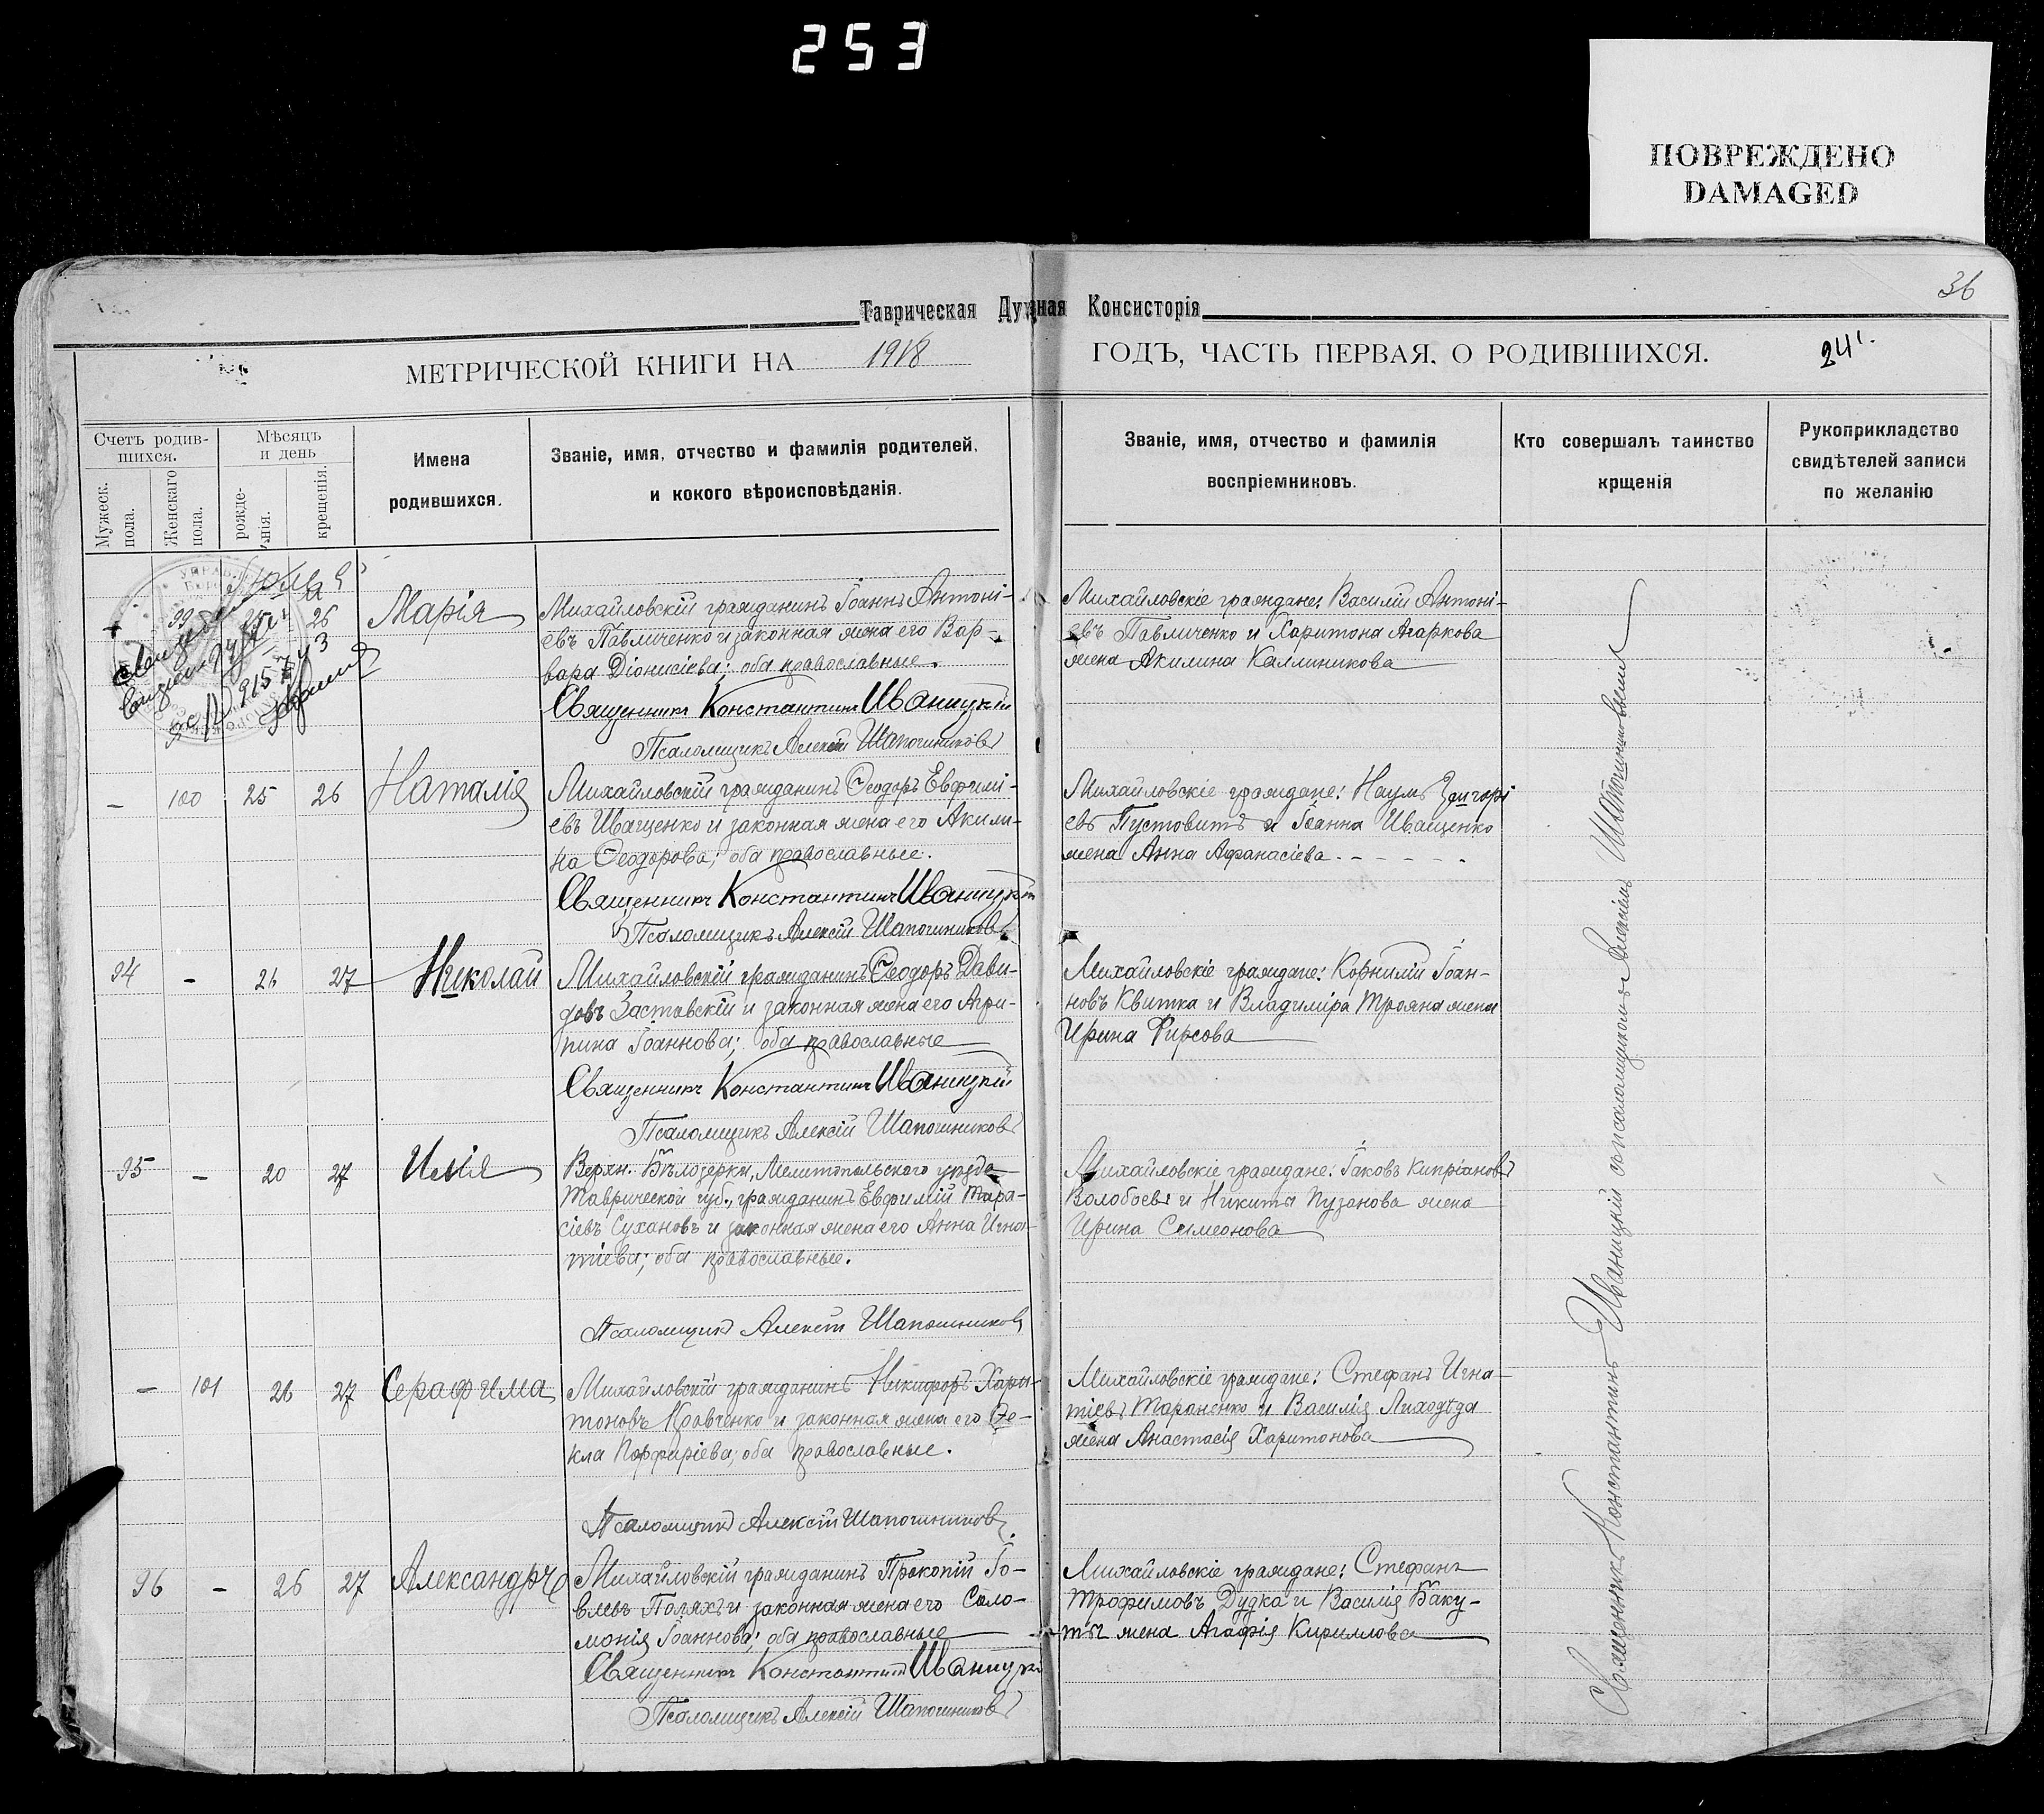 253
ПОВРЕЖДЕНО
DAMAGED
36
Таврическая Духная Консисторія
МЕТРИЧЕСКОЙ КНИГИ НА 1918
ГОДЪ, ЧАСТЬ ПЕРВАЯ, О РОДИВШИХСЯ.
24
Счетъ родив-
шихся.
Мужеск.
пола.
Женскаго
пола.
Мѣсяцъ
и день
рожде-
нія.
крещенія.
Имена
родившихся.
Званіе, имя, отчество и фамилія родителей,
и кокого вѣроисповѣданія.
Званіе, имя, отчество и фамилія
воспріемниковъ.
Кто совершалъ таинство
крщенія
Рукоприкладство
свидѣтелей записи
по желанію
99 25 26 Марія
Михайловскій гражданинъ Іоаннъ Антоні-
евъ Павличенко и законная жена его Вар-
вара Діонисіева; оба православные.
Священникъ Константинъ Иваницкій
Псаломщикъ Алексій Шапошниковъ
Михайловскіе граждане: Василій Антоні-
евъ Павличенко и Харитона Агаркова
жена Акилина Калиникова
- 100 25 26 Наталія
Михайловскій гражданинъ Ѳеодоръ Евфимі-
евъ Иващенко и законная жена его Акили-
на Ѳеодорова; оба православные.
Священникъ Константинъ Иваницкій
Псаломщикъ Алексій Шапошниковъ
Михайловскіе граждане: Наумъ Григорі
евъ Пустовитъ и Іоанна Иващенко
жена Анна Афанасіева
94 - 26 27 Николай
Михайловскій гражданинъ Ѳеодоръ Дави-
довъ Заставскій и законная жена его Агри-
пина Іоаннова; оба православные
Священникъ Константинъ Иваницкій
Псаломщикъ Алексій Шапошниковъ
Михайловскіе граждане: Корнилій Іоан-
новъ Квитка и Владиміра Трояна жена
Ирина Фирсова
95 - 20 27 Илія
Верхн. Бѣлозерки, Мелитопольского уѣзда
Таврической губ., гражданинъ Евфимій Тара-
сіевъ Сухановъ и законная жена его Анна Игна-
тіева; оба православные.
Псаломщикъ Алексій Шапошниковъ
Михайловскіе граждане: Іаковъ Кипріановъ
Волобоевъ и Никиты Пузанова жена
Ирина Симеонова
- 101 26 27 Серафима
Михайловскій гражданинъ Никифоръ Хари-
тоновъ Кравченко и законная жена его Ѳе-
кла Порфиріева; оба православные.
Псаломщикъ Алексій Шапошниковъ
Михайловскіе граждане: Стефанъ Игна-
тіевъ Тараненко и Василія Лиходѣда
жена Анастасія Харитонова
96 - 26 27 Александръ
Михайловскій гражданинъ Прокопій Іо-
влевъ Поляхъ и законная жена его Соло-
монія Іоаннова; оба православные
Священникъ Константинъ Иваницкій
Псаломщикъ Алексій Шапошниковъ
Михайловскіе граждане: Стефанъ
Трофимовъ Дудка и Василія Баку-
ты жена Агафія Кириллова
Священникъ Константинъ Иваницкій съ псаломщикомъ Алексіемъ Шапошниковымъ